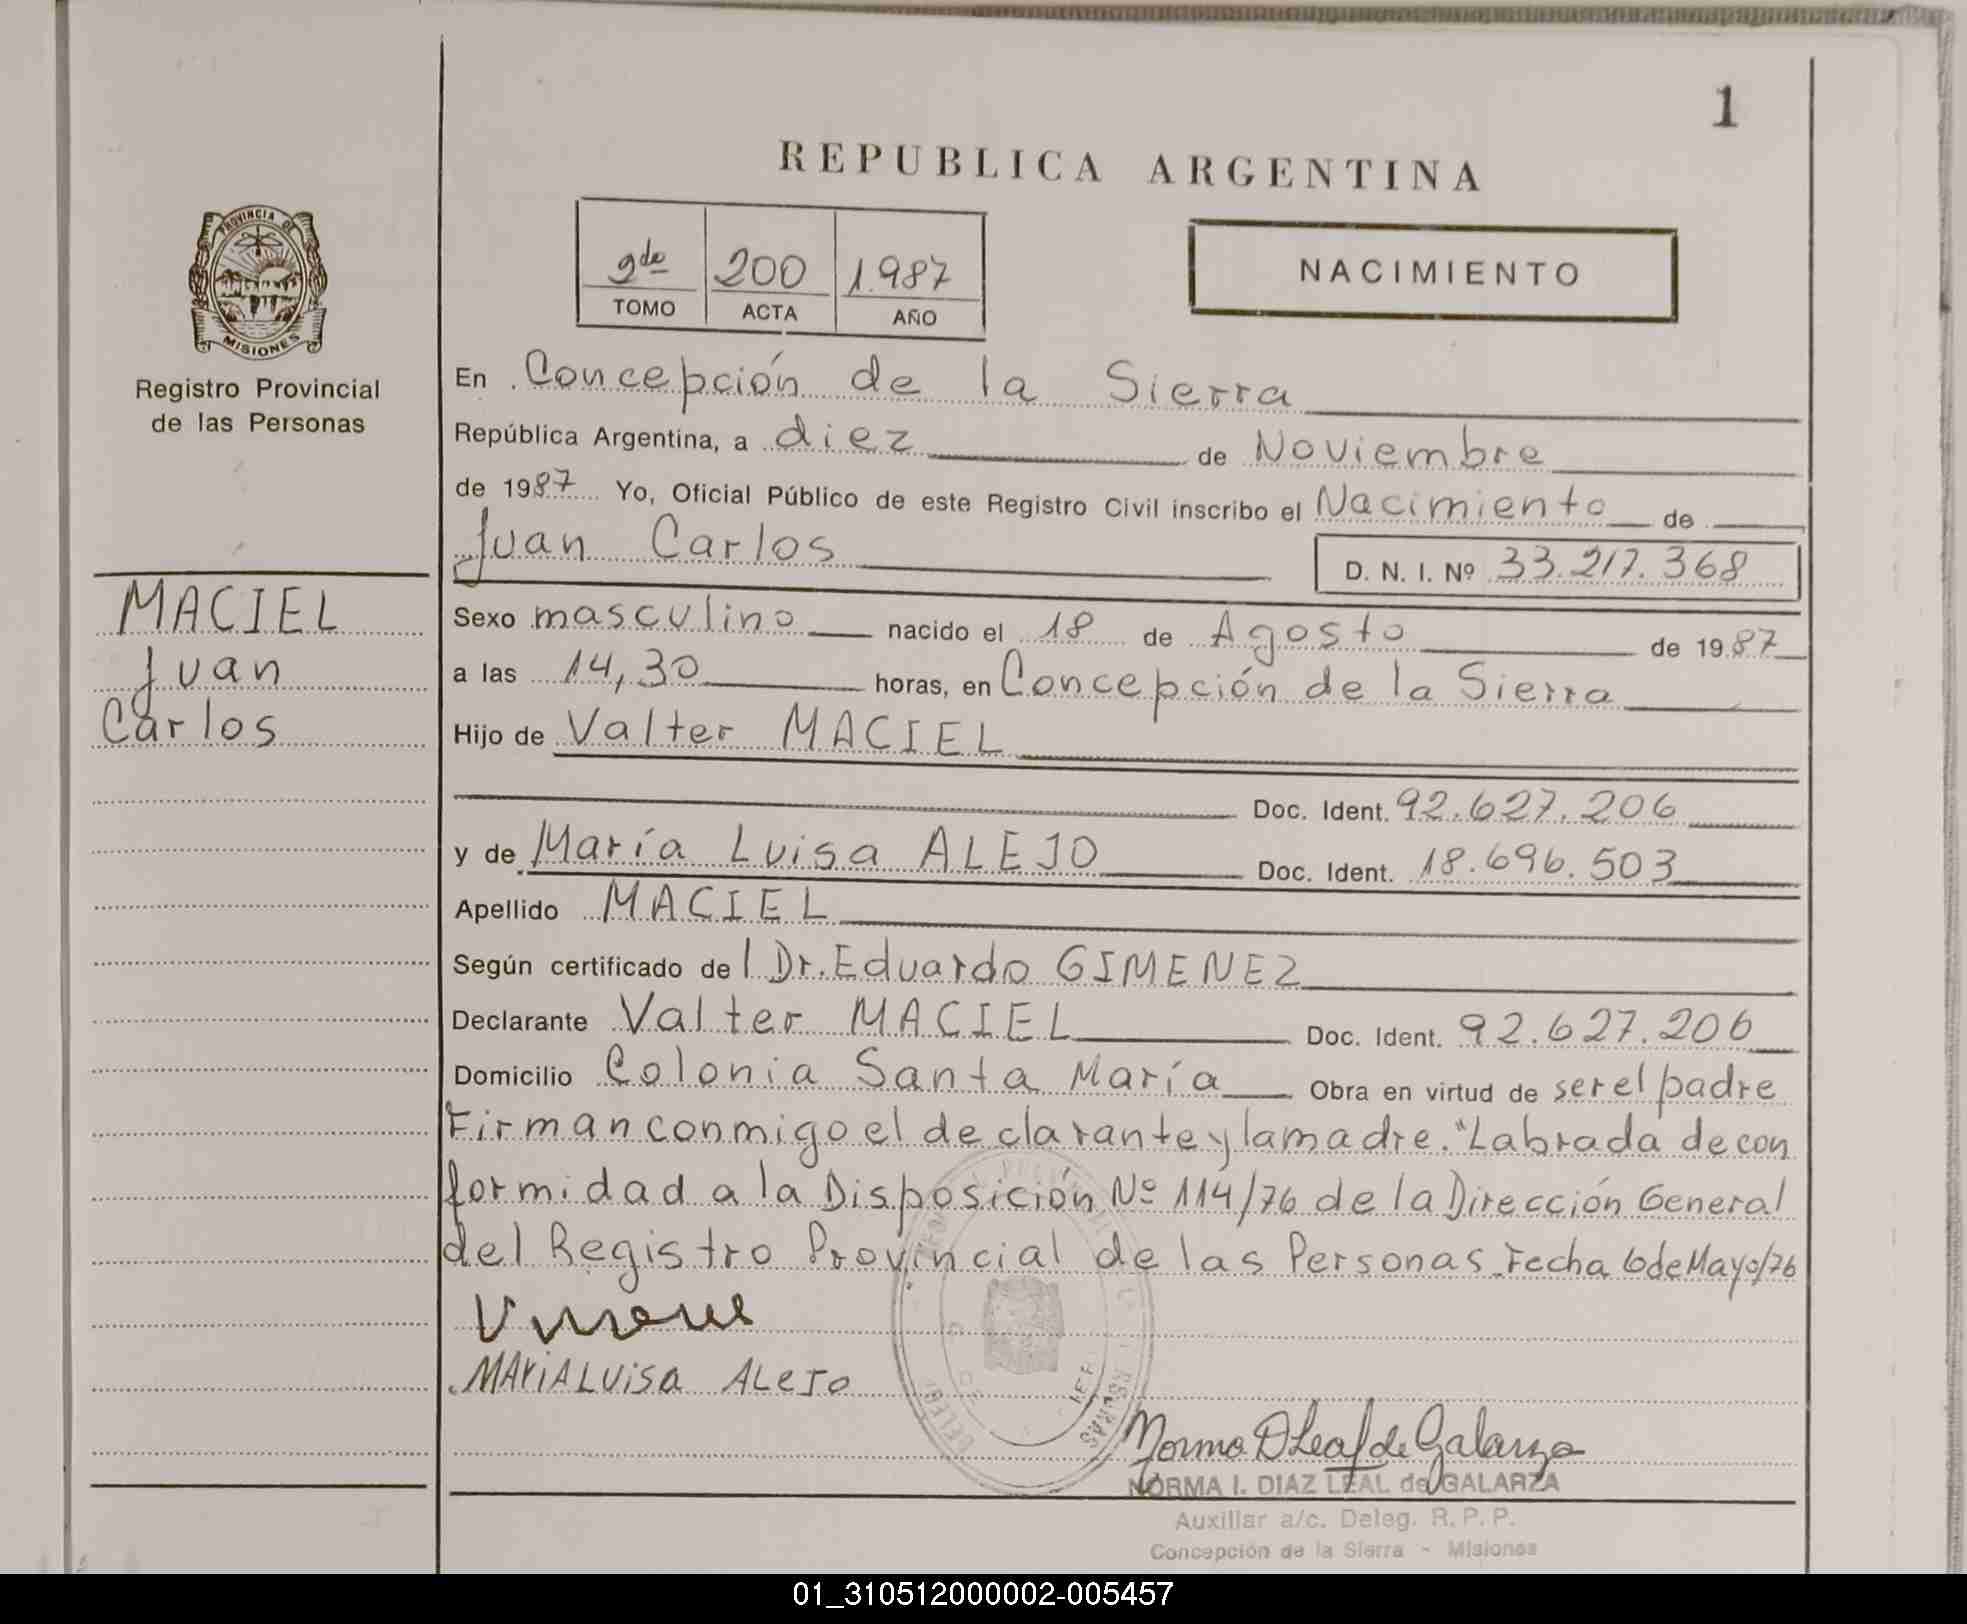 1
REPUBLICA ARGENTINA
PROVINCIA DE
MISIONES
Registro Provincial
de las Personas
2do 200 1.987
TOMO ACTA AÑO
NACIMIENTO
En Concepción de la Sierra
República Argentina, a diez de Noviembre
de 1987 Yo, Oficial Público de este Registro Civil inscribo el Nacimiento de
Juan Carlos D. N. I. Nº 33.217.368
MACIEL
Juan
Carlos
Sexo masculino nacido el 18 de Agosto de 1987
a las 14,30 horas, en Concepción de la Sierra
Hijo de Valter MACIEL
Doc. Ident. 92.627.206
y de María Luisa ALEJO Doc. Ident. 18.696.503
Apellido MACIEL
Según certificado del Dr. Eduardo GIMENEZ
Declarante Valter MACIEL Doc. Ident. 92.627.206
Domicilio Colonia Santa María Obra en virtud de ser el padre
Firman conmigo el declarante y la madre. "Labrada de con
formidad a la Disposición Nº 114/76 de la Dirección General
del Registro Provincial de las Personas Fecha 6 de Mayo/76
MARIA LUISA ALEJO
Norma D Leal de Galarza
NORMA I. DIAZ LEAL de GALARZA
Auxiliar a/c. Deleg. R. P. P.
Concepción de la Sierra - Misiones
01_310512000002-005457